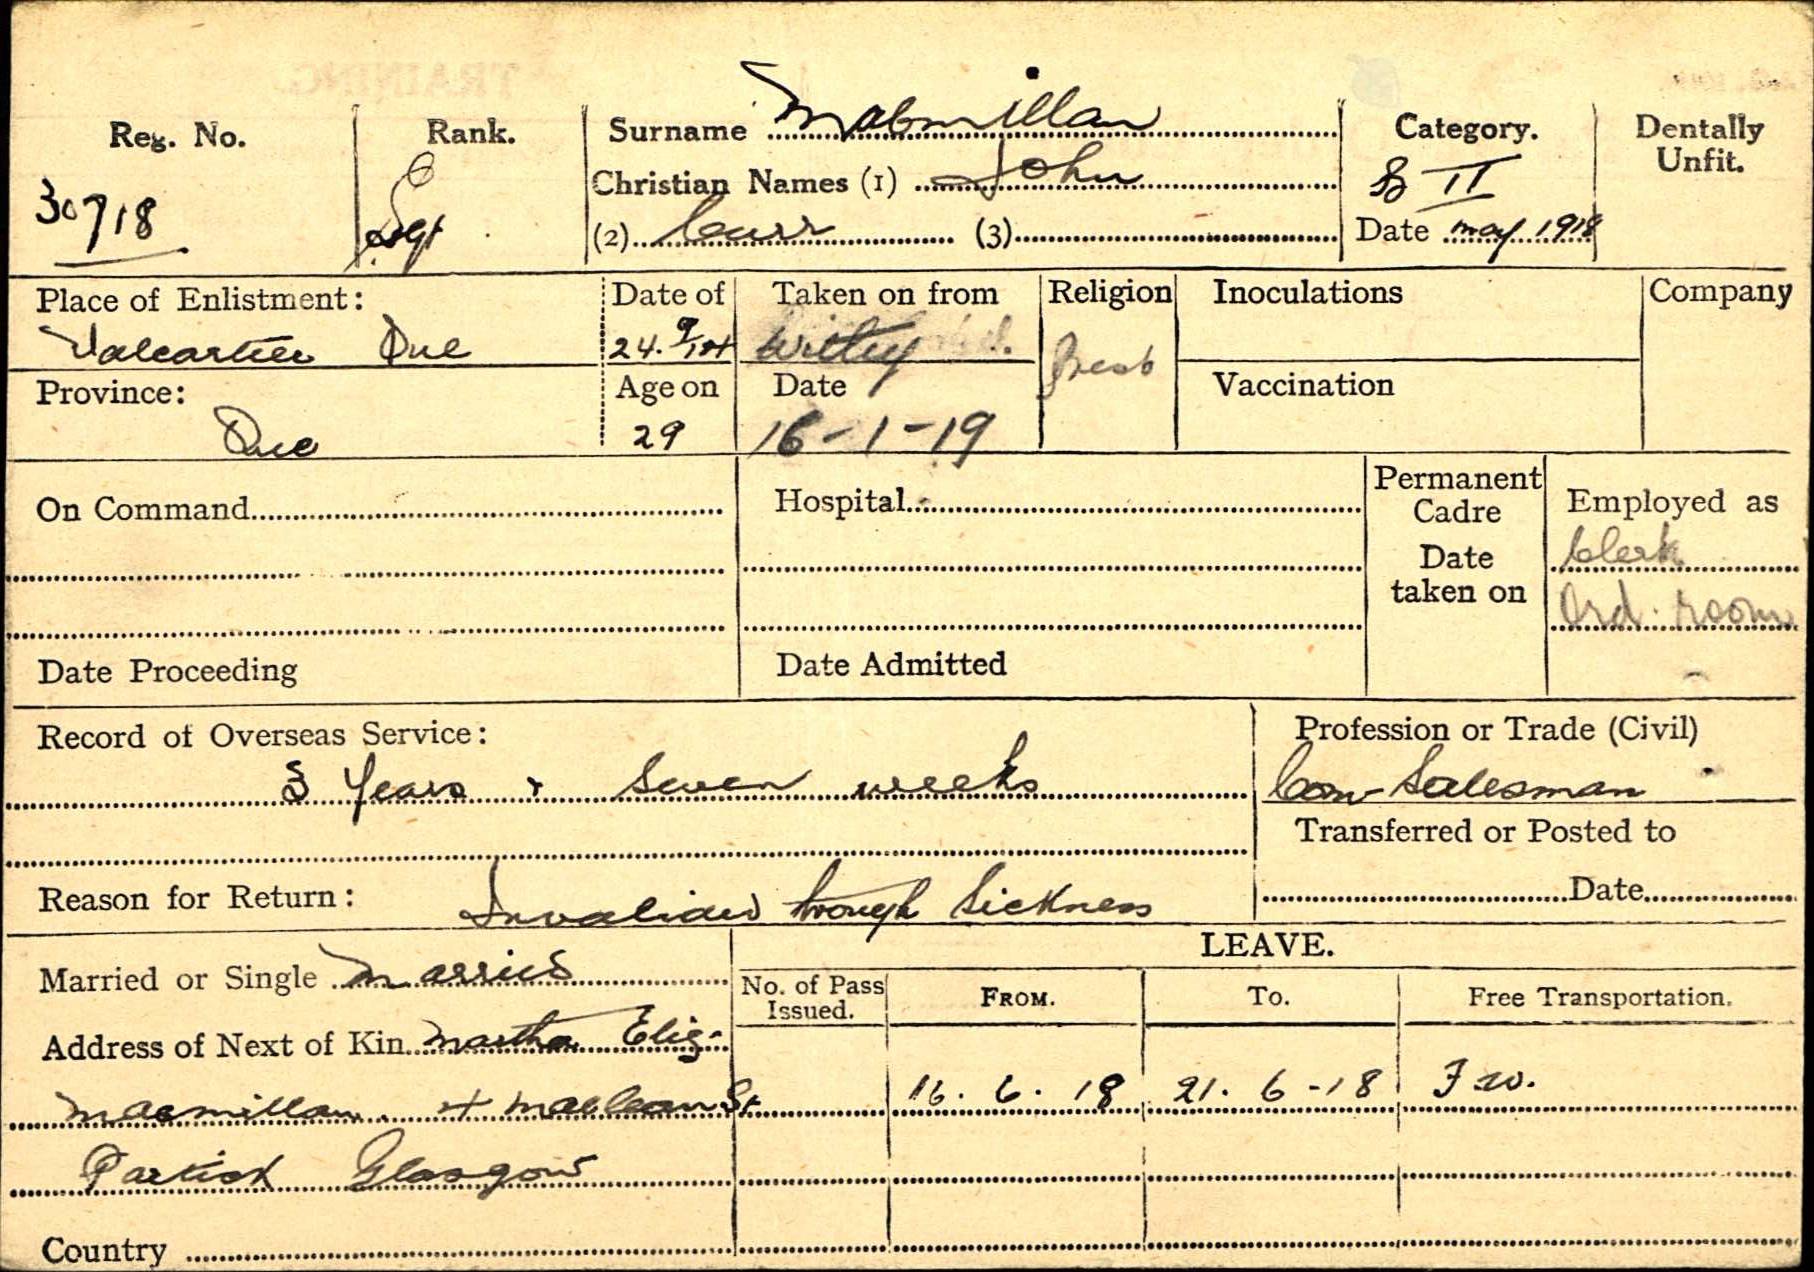 TRAINING.
Reg. No.
30718
Rank.
Sgt
Surname Macmillan
Christian Names (1) John
(2) Carr (3)
Category.
B II
Date May 1918
Dentally
Unfit.
Place of Enlistment:
Valcartier Que
Date of
24.9/14
Taken on from
Witley
Religion
Presb
Inoculations
Company
Province:
Que
Age on
29
Date
16-1-19
Vaccination
On Command
Hospital
Permanent
Cadre
Date
taken on
Employed as
Clerk
Ord. room
Date Proceeding
Date Admitted
Record of Overseas Service:
3 Years & Seven weeks
Profession or Trade (Civil)
Com Salesman
Transferred or Posted to
Date
Reason for Return:
Invalided through Sickness
Married or Single Married
LEAVE.
No. of Pass
Issued.
From.
To.
Free Transportation.
Address of Next of Kin Martha Eliz-
Macmillan. Maclean St
16. 6. 18
21. 6 - 18
F W.
Partick Glasgow
Country